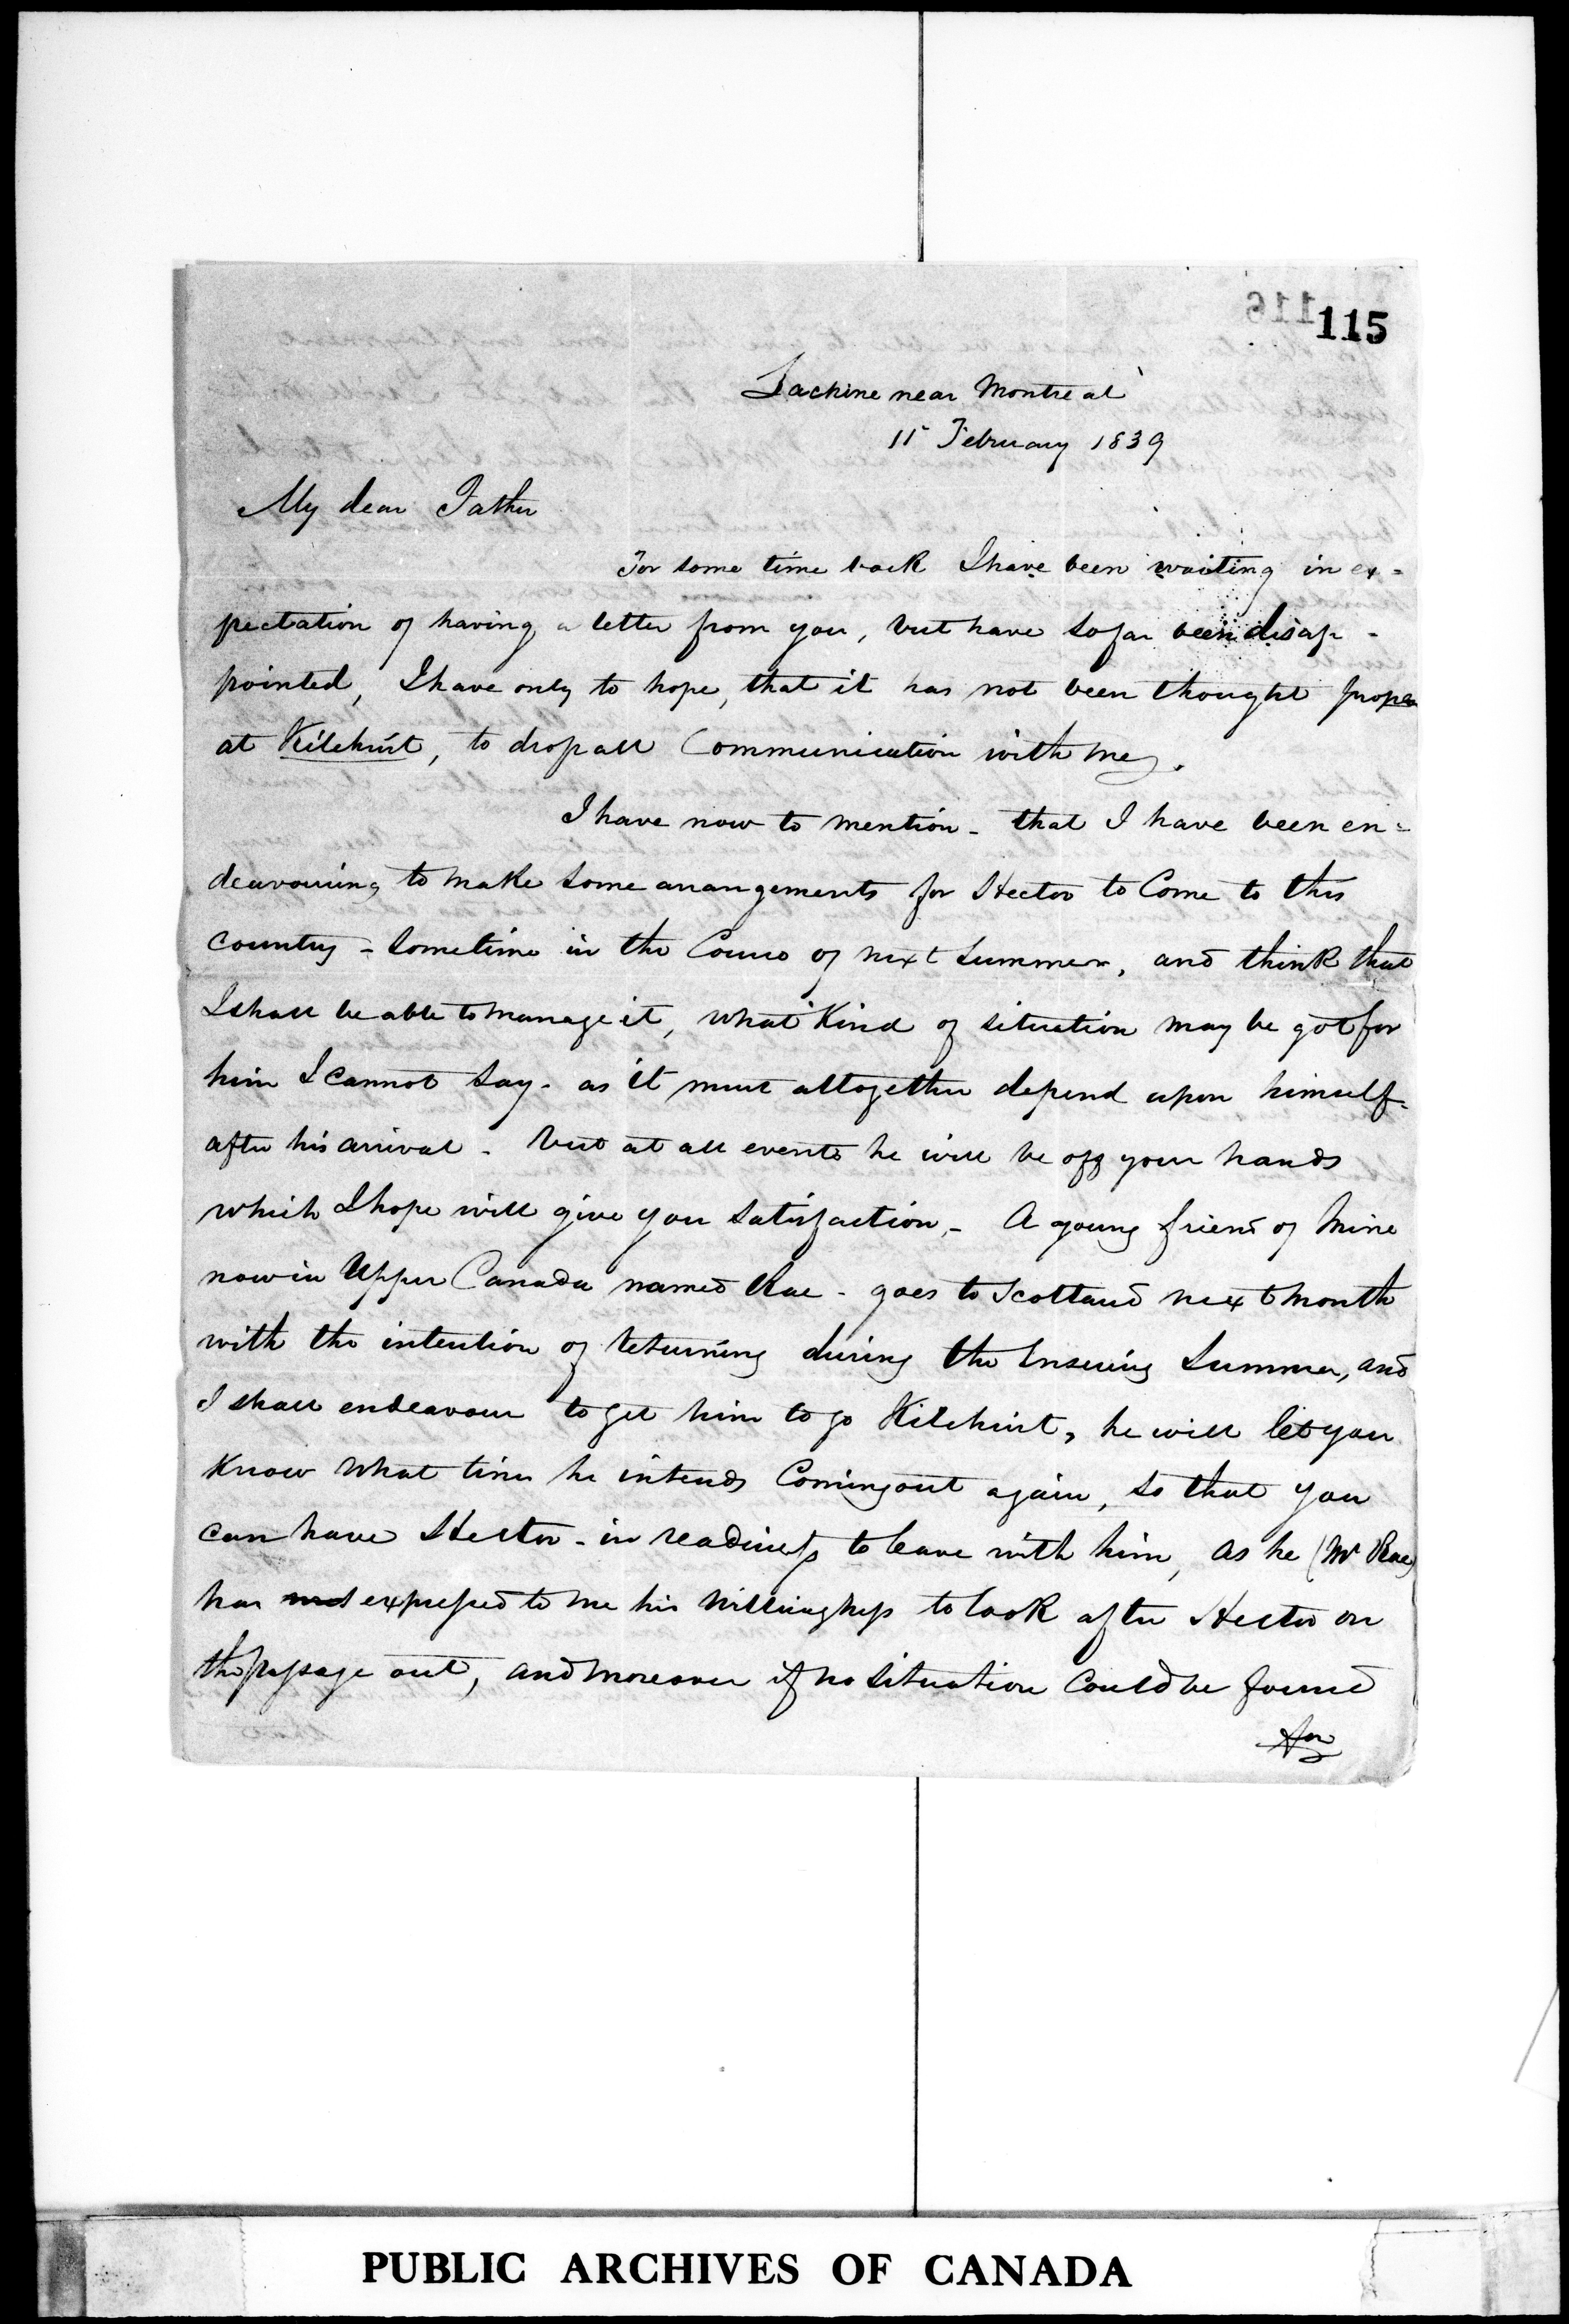 116
115
Lachine near Montreal
11 February 1839
My dear Father
For some time back I have been waiting in ex=
pectation of having a letter from you, but have so far been disap-
pointed, I have only to hope, that it has not been thought proper
at Kilchust, to drop all Communication with me.
I have now to mention - that I have been en=
deavouring to make some arrangements for Hector to Come to this
country - sometime in the Course of next summer, and think that
I shall be able to manage it, what Kind of situation may be got for
him I cannot say - as it must altogether depend upon himself
after his arrival - but at all events he will be off your hands
which I hope will give you satisfaction, - A young friend of mine
now in Upper Canada named Rae - goes to Scotland next month
with the intention of returning during the ensuing Summer, and
I shall endeavour to get him to go Kilchust, he will let you
Know what time he intends Coming out again, so that you
can have Hector - in readiness to leave with him, as he (Mr Rae)
has expressed to me his willingness to look after Hector on
the passage out, and moreover if no situation Could be found
for
PUBLIC ARCHIVES OF CANADA